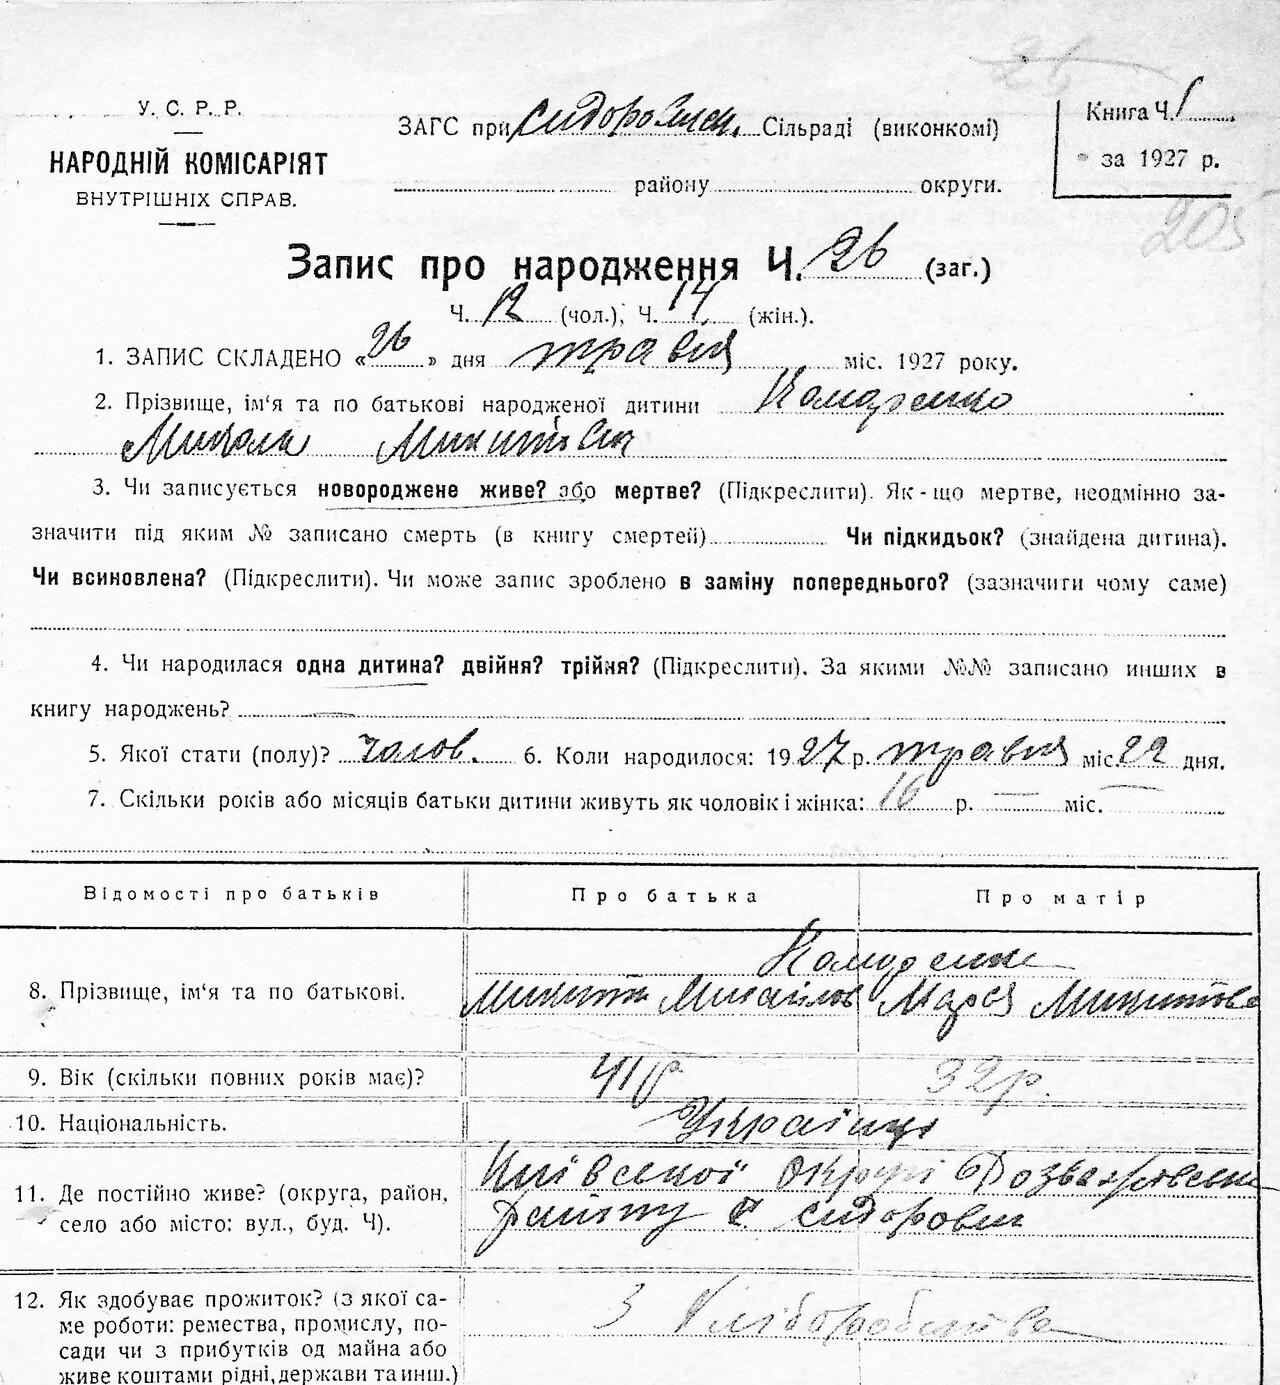 26
У. С. Р. Р.
НАРОДНІЙ КОМІСАРІЯТ
ВНУТРІШНІХ СПРАВ.
ЗАГС при Сидоровиси. Сільраді (виконкомі)
району округи.
Книга Ч. 1
за 1927 р.
205
Запис про народження Ч. 26 (заг.)
Ч. 12 (чол.), Ч. 14 (жін.).
1. ЗАПИС СКЛАДЕНО «26» дня травня міс. 1927 року.
2. Прізвище, ім‘я та по батькові народженої дитини Комаренко
Микола Микитович
3. Чи записується новороджене живе? або мертве? (Підкреслити). Як-що мертве, неодмінно за-
значити під яким № записано смерть (в книгу смертей) Чи підкидьок? (знайдена дитина).
Чи всиновлена? (Підкреслити). Чи може запис зроблено в заміну попереднього? (зазначити чому саме)
4. Чи народилася одна дитина? двійня? трійня? (Підкреслити). За якими №№ записано инших в
книгу народжень? —
5. Якої стати (полу)? чолов. 6. Коли народилося: 1927 р. травня міс. 22 дня.
7. Скільки років або місяців батьки дитини живуть як чоловік і жінка: 16 р. — міс. —
Відомості про батьків Про батька Про матір
Комаренко
8. Прізвище, ім‘я та по батькові. Микита Михайлов Мария Микитова
9. Вік (скільки повних років має)? 41 р. 32 р.
10. Національність. Українці
Київської округи Розважівськ
11. Де постійно живе? (округа, район,
село або місто: вул., буд. Ч). району с. Сидоровичі
12. Як здобуває прожиток? (з якої са- З хліборобства
ме роботи: ремества, промислу, по-
сади чи з прибутків од майна або
живе коштами рідні, держави та инш.)